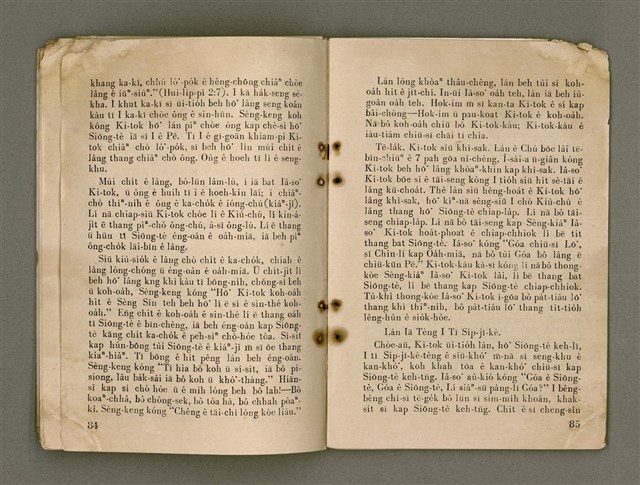 khang ka-kī, chhú lô͘-po̍k ê hêng-chōng chiâⁿ chòe
lâng ê iūⁿ-siūⁿ."(Hui-li̍p-pí 2:7). I kā hák-seng sé-
kha. I khut ka-kī sī ūi-tio̍h beh hō͘ lâng seng koân
kàu tī I ka-kī chòe ông ê sin-hūn. Sèng-keng koh
kóng Ki-tok hō͘ lán pìⁿ chòe ông kap chè-si hō͘
Siōng-tè iā sī I ê Pē. Tī I ê gī-goān khiam-pi Ki-
tok chiâⁿ chò lô͘-po̍k, sī beh hō͘ lín múi chi̍t ê
lâng thang chiâⁿ chò ông. Ông ê hoeh tī lí ê seng-
khu.
Múi chi̍t ê lâng, bô-lūn lâm-lú, i iā bat Iâ-so͘
Ki-tok, ū ông ê huih tī i ê hoeh-kin lāi; i chiâⁿ-
chò thiⁿ-nih ê ông ê ka-cho̍k ê ióng-chú(kiáⁿ-jí).
Lí nā chiap-siū Ki-tok chòe lí ê Kiù-chú, lí kin-á-
ji̍t ē thang pìⁿ-chò ông-chú, á-sī ông-lú. Lí ē thang
ū hūn tī Siōng-tè éng-oán ê oa̍h-miā, iā beh pìⁿ
ông-cho̍k lāi-bīn ê lâng.
Siū kiù-sio̍k ê lâng chò chit ê ka-cho̍k, chiah ê
lâng lóng-chóng ū éng-oán ê oa̍h-miā. Ū chi̍t-ji̍t lí
beh hō͘ lâng kng khì kàu tī bōng-nih, chóng-sī beh
ū koh-oa̍h, Sèng-keng kóng "Hō͘ Ki-tok koh-oa̍h
hit ê Sèng Sîn teh beh hō͘ lí ê sí ê sin-thé koh-
oa̍h." Eng chit ê koh-oa̍h ê sin-thé lí ē thang oa̍h
tī Siōng-tè ê bīn-chêng, iā beh éng-oán kap Siōng-
tè kāng chi̍t ka-cho̍k ê peh-sìⁿ chò-hóe tòa. Sí-sit
kap hûn-bōng tùi Siōng-tè ê kiáⁿ-jí m̄ sī ōe thang
kiaⁿ-hiâⁿ. Tī bōng ê hit pêng lán beh éng-oán.
Sèng-keng kóng "Tī hia bô koh ū sí-sit, iā bô pi-
siong, lâu ba̍k-sái iā bô koh ū khó͘-thàng." Hiān-
kap sí chò hóe ū ê mih lóng beh bô lah!—Bô
koaⁿ-chhâ, bô chòng-sek, bô tōa hà, bô chhah pòaⁿ-
kî. Sèng-keng kóng "Chêng ê tāi-chì lóng kòe liáu."
84
Lán lóng khòaⁿ thâu-chêng, lán beh tùi sí koh-
oa̍h hit ê ji̍t-chí. In-ūi Iâ-so͘ oa̍h teh, lán iā beh iú-
goân oa̍h teh. Hok-im m̄ sī kan-ta Ki-tok ê sí kap
bâi-chòng—Hok-im ū pau-koat Ki-tok ê koh-oa̍h.
Nā bô koh-oa̍h chiū bô Ki-tok-kàu; Ki-tok-kàu ê
iàu-tiám chiū-sī chāi tī chia.
Tē-la̍k. Ki-tok siū khì-sak. Lán ê Chú bōe lâi tē-
bīn-chiūⁿ ê 7 pah gōa nî-chêng, Í-sài-a ū-giân kóng
Ki-tok beh hō͘ lâng khòaⁿ-khin kap khì-sak. Iâ-so͘
Ki-tok bōe sí ê tāi-seng kóng I tio̍h siū hit sè-tāi ê
lâng kū-choa̍t. Thè lán siū hêng-hoa̍t ê Ki-tok hō͘
lâng khì-sak, hō͘ kìⁿ-nā sèng-siū I chò Kiù-chú ê
lâng thang hō͘ Siōng-tè chiap-la̍p. Lí nā bô tāi-
seng chiap-la̍p. Lí nā bô tāi-seng kap Sèng-kiáⁿ Iâ-
so͘ Ki-tok hoa̍t-phoat ê chiap-chhiok lí bē tit
thang bat Siōng-tè. Iâ-so͘ kóng "Góa chiū-sī Lō͘,
sī Chin-lí kap Oa̍h-miā, nā bô tùi Góa bô lâng ē
chiū-kūn Pē." Ki-tok-kàu kà-sī kóng lí nā bô thong-
kòe Sèng-kiáⁿ Iâ-so͘ Ki-tok lâi, lí bē thang bat
Siōng-tè, lí bē thang kap Siōng-tè chiap-chhiok.
Tû-khì thong-kòe Iâ-so͘ Ki-tok í-gōa bô pa̍t-tiâu lō͘
thang khì thiⁿ-nih, bô pa̍t-tiâu lō͘ thang tit-tio̍h
lêng-hûn ê sio̍k-hôe.
Lán Iā Têng I Tī Si̍p-jī-kè.
Chòe-āu, Ki-tok ūi-tio̍h lán, hō͘ Siōng-tè keh-lī,
I tī Si̍p-jī-kè-téng ê siū-khó͘ m̄-nā sī seng-khu ê
kan-khó͘, koh khah tōa ê kan-khó͘ chiū-sī kap
Siōng-tè keh-tn̄g. Iâ-so͘ aū-kiò kóng "Góa ê Siōng-
tè, Góa ê Siōng-tè, Lí siáⁿ-sū pàng-lī Góa?" I bêng-
bêng chi-sī te-ge̍k bô lūn sī sím-mi̍h khoán, khak-
si̍t sī kap Siōng-tè keh-tn̄g. Chit ê sī cheng-sîn
85